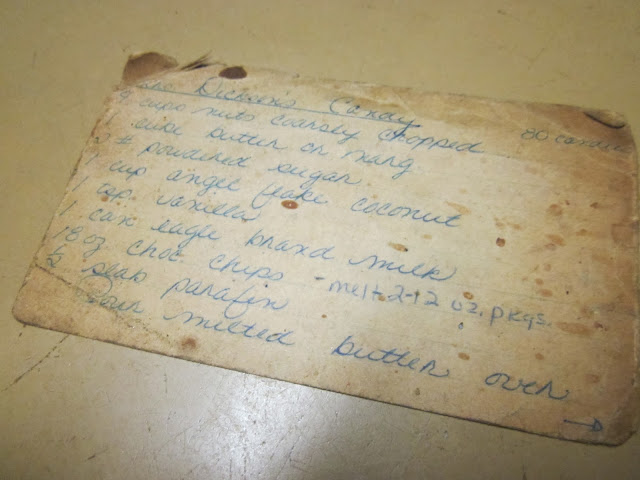 Dickson's Candy
80 candies
cups nuts coarsely chopped
cube butter or marg
2 # powdered sugar
1 cup angel flake coconut
1 tsp vanilla
1 can eagle brand milk
18 oz choc chips - melt 2-12 oz. pkgs.
½ slab parafin
Pour milted butter over
→